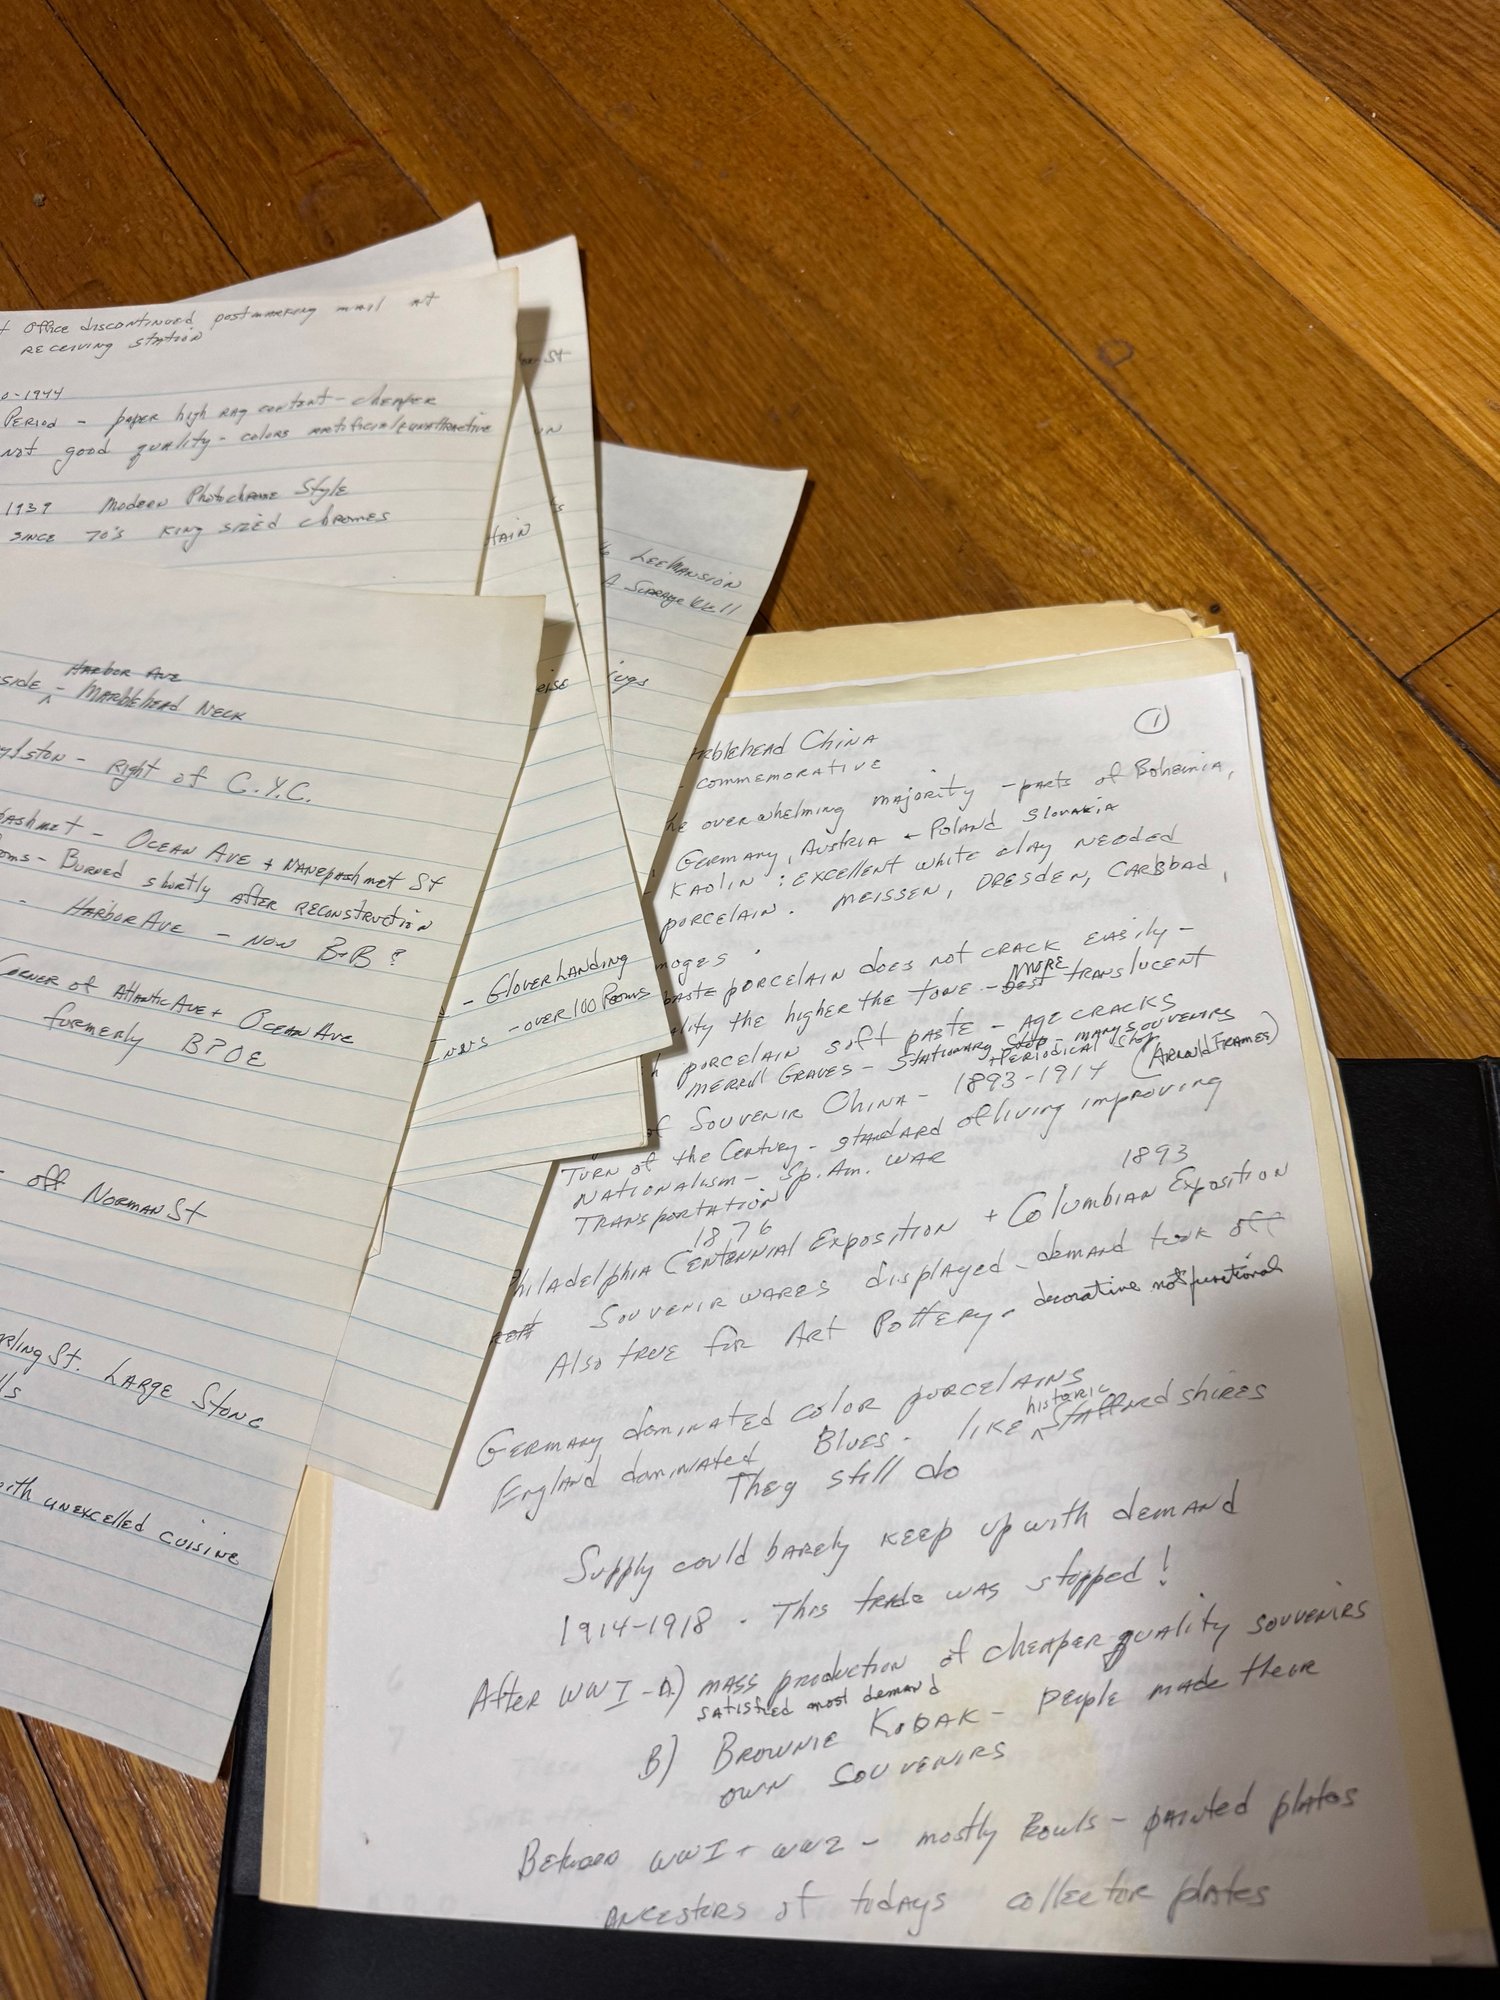 Office discontinued postmarking mail at
receiving station
-1944
Period - paper high rag content - cheaper
not good quality - colors artificial/unattractive
1939 Modern Photochrome Style
since 70's King sized chromes
St
un
Hain
LeeMansion
A
erse
ings
Harbor Ave
side - Marblehead Neck
ylston - right of C.Y.C.
ashmet - Ocean Ave + Nanepashmet St
oms - Burned shortly after reconstruction
- Harbor Ave - now B+B?
Corner of Atlantic Ave + Ocean Ave
formerly BPOE
- off Norman St
rling St. Large Stone
lls
with unexcelled cuisine
- Glover Landing
- over 100 Rooms
Inns
①
rblehead China
- commemorative
he overwhelming majority - parts of Bohemia,
Germany, Austria + Poland Slovakia
Kaolin : excellent white clay needed
porcelain. Meissen, Dresden, Carlsbad,
moges .
paste porcelain does not crack easily -
lity the higher the tone - best more translucent
h porcelain soft paste - age cracks
Merrill Graves - Stationary Shop - many souvenirs
+ Periodical shop
of Souvenir China - 1893-1914 (Arnould Frames)
Turn of the Century - standard of living improving
Nationalism - Sp. Am. War
Transportation
1876 1893
Philadelphia Centennial Exposition + Columbian Exposition
Souvenir wares displayed - demand took off
Also true for Art Pottery - decorative not functional
Germany dominated color porcelains
England dominated Blues - like historic Staffordshires
They still do
Supply could barely keep up with demand
1914-1918 . This trade was stopped!
After WWI - A) mass production of cheaper quality souvenirs
satisfied most demand
B) Brownie Kodak - people made their
own souvenirs
Between WWI + WW2 - mostly Bowls - painted plates
ancestors of todays collector plates